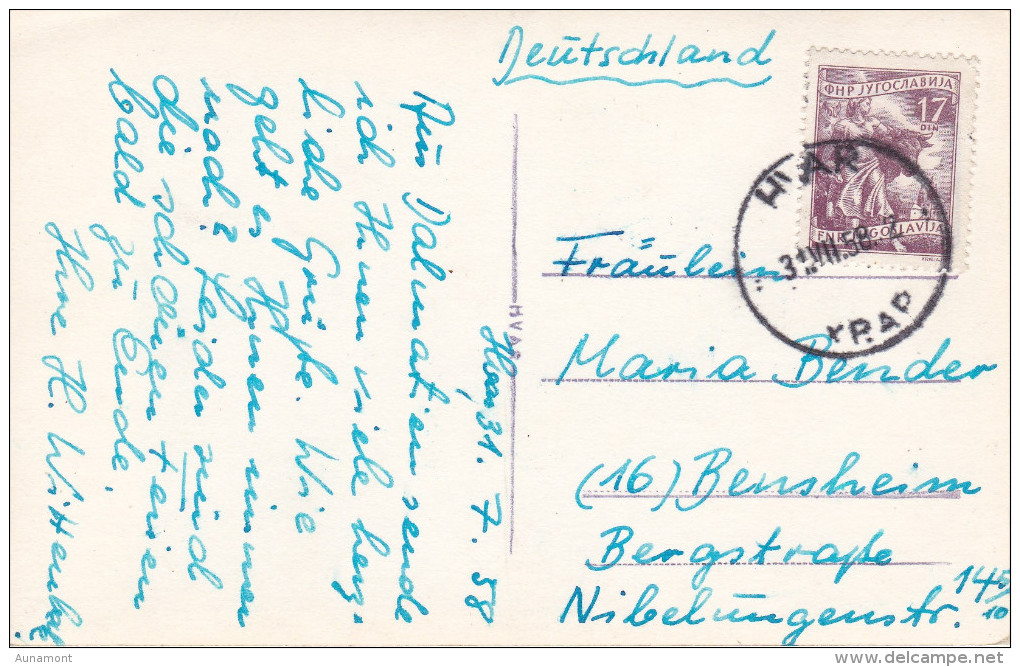 Deutschland
ФНР ЈУГОСЛАВИЈА
17
DIN
FNR JUGOSLAVIJA
HVAR
31.VII.58
ХВАР
Fräulein
Maria Bender
(16) Bensheim
Bergstraße
Nibelungenstr. 145/10
HVAR
Hvar, 31. 7. 58
Aus Dalmatien sende
ich Ihnen viele herz-
liche Grüße. Wie
geht es Ihnen immer
noch? Leider sind
die schönen Ferien
bald zu Ende.
Ihre H.
Aunamont
delcampe.net